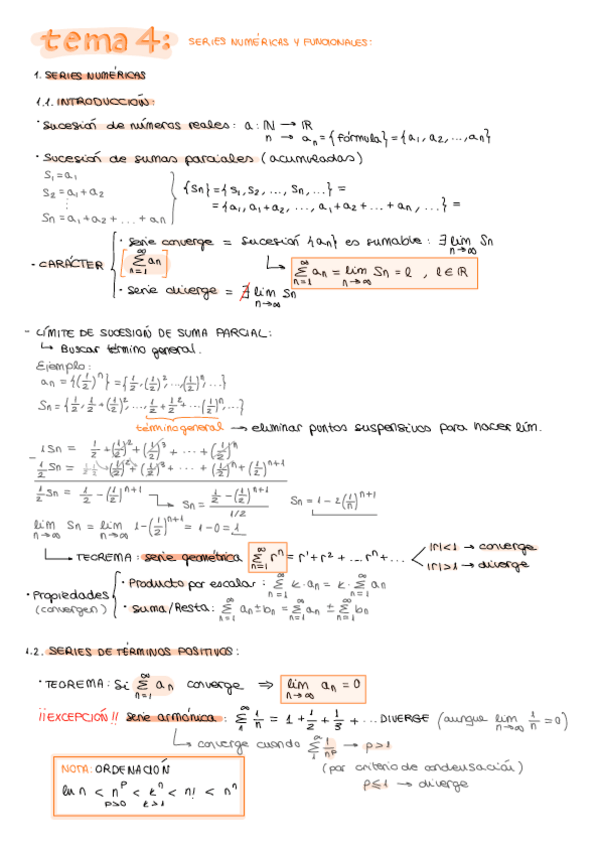 tema 4: SERIES NUMÉRICAS Y FUNCIONALES:
1. SERIES NUMÉRICAS
1.1. INTRODUCCIÓN:
· Sucesión de números reales: a: ℕ → ℝ
n → aₙ = {fórmula} = {a₁, a₂, ..., aₙ}
· Sucesión de sumas parciales (acumuladas)
S₁ = a₁
S₂ = a₁ + a₂
⋮
Sₙ = a₁ + a₂ + ... + aₙ
{Sₙ} = {S₁, S₂, ..., Sₙ, ...} =
= {a₁, a₁ + a₂, ..., a₁ + a₂ + ... + aₙ, ...} =
· CARÁCTER [∑_{n=1}^{∞} aₙ]
· serie converge = sucesión {aₙ} es sumable: ∃ lim_{n→∞} Sₙ
↳ ∑_{n=1}^{∞} aₙ = lim_{n→∞} Sₙ = l, l ∈ ℝ
· serie diverge = ∄ lim_{n→∞} Sₙ
- LÍMITE DE SUCESIÓN DE SUMA PARCIAL:
↳ Buscar término general.
Ejemplo:
aₙ = {(1/2)ⁿ} = {1/2, (1/2)², ..., (1/2)ⁿ, ...}
Sₙ = {1/2, 1/2 + (1/2)², ..., 1/2 + 1/2² + ... (1/2)ⁿ, ...}
término general → eliminar puntos suspensivos para hacer lím.
1Sₙ = 1/2 + (1/2)² + (1/2)³ + ... + (1/2)ⁿ
- 1/2 Sₙ = 1/2·1/2 + (1/2)² + (1/2)³ + ... + (1/2)ⁿ + (1/2)ⁿ⁺¹
1/2 Sₙ = 1/2 - (1/2)ⁿ⁺¹ ↳ Sₙ = (1/2 - (1/2)ⁿ⁺¹) / 1/2 Sₙ = 1 - 2(1/n)ⁿ⁺¹
lím_{n→∞} Sₙ = lím_{n→∞} 1 - (1/2)ⁿ⁺¹ = 1 - 0 = 1
↳ TEOREMA: serie geométrica ∑_{n=1}^{∞} rⁿ = r¹ + r² + ... rⁿ + ...
|r|<1 → converge
|r|>1 → diverge
· Propiedades (convergen)
· Producto por escalar: ∑_{n=1}^{∞} k·aₙ = k·∑_{n=1}^{∞} aₙ
· Suma/Resta: ∑_{n=1}^{∞} aₙ ± bₙ = ∑_{n=1}^{∞} aₙ ± ∑_{n=1}^{∞} bₙ
1.2. SERIES DE TÉRMINOS POSITIVOS:
· TEOREMA: Si ∑_{n=1}^{∞} aₙ converge ⇒ lim_{n→∞} aₙ = 0
¡¡EXCEPCIÓN!! serie armónica: ∑_{1}^{∞} 1/n = 1 + 1/2 + 1/3 + ... DIVERGE (aunque lim_{n→∞} 1/n = 0)
↳ converge cuando ∑_{1}^{∞} 1/nᵖ → p>1
(por criterio de condensación)
p≤1 → diverge
NOTA: ORDENACIÓN
ln n < nᵖ < kⁿ < n! < nⁿ
p>0 k>1